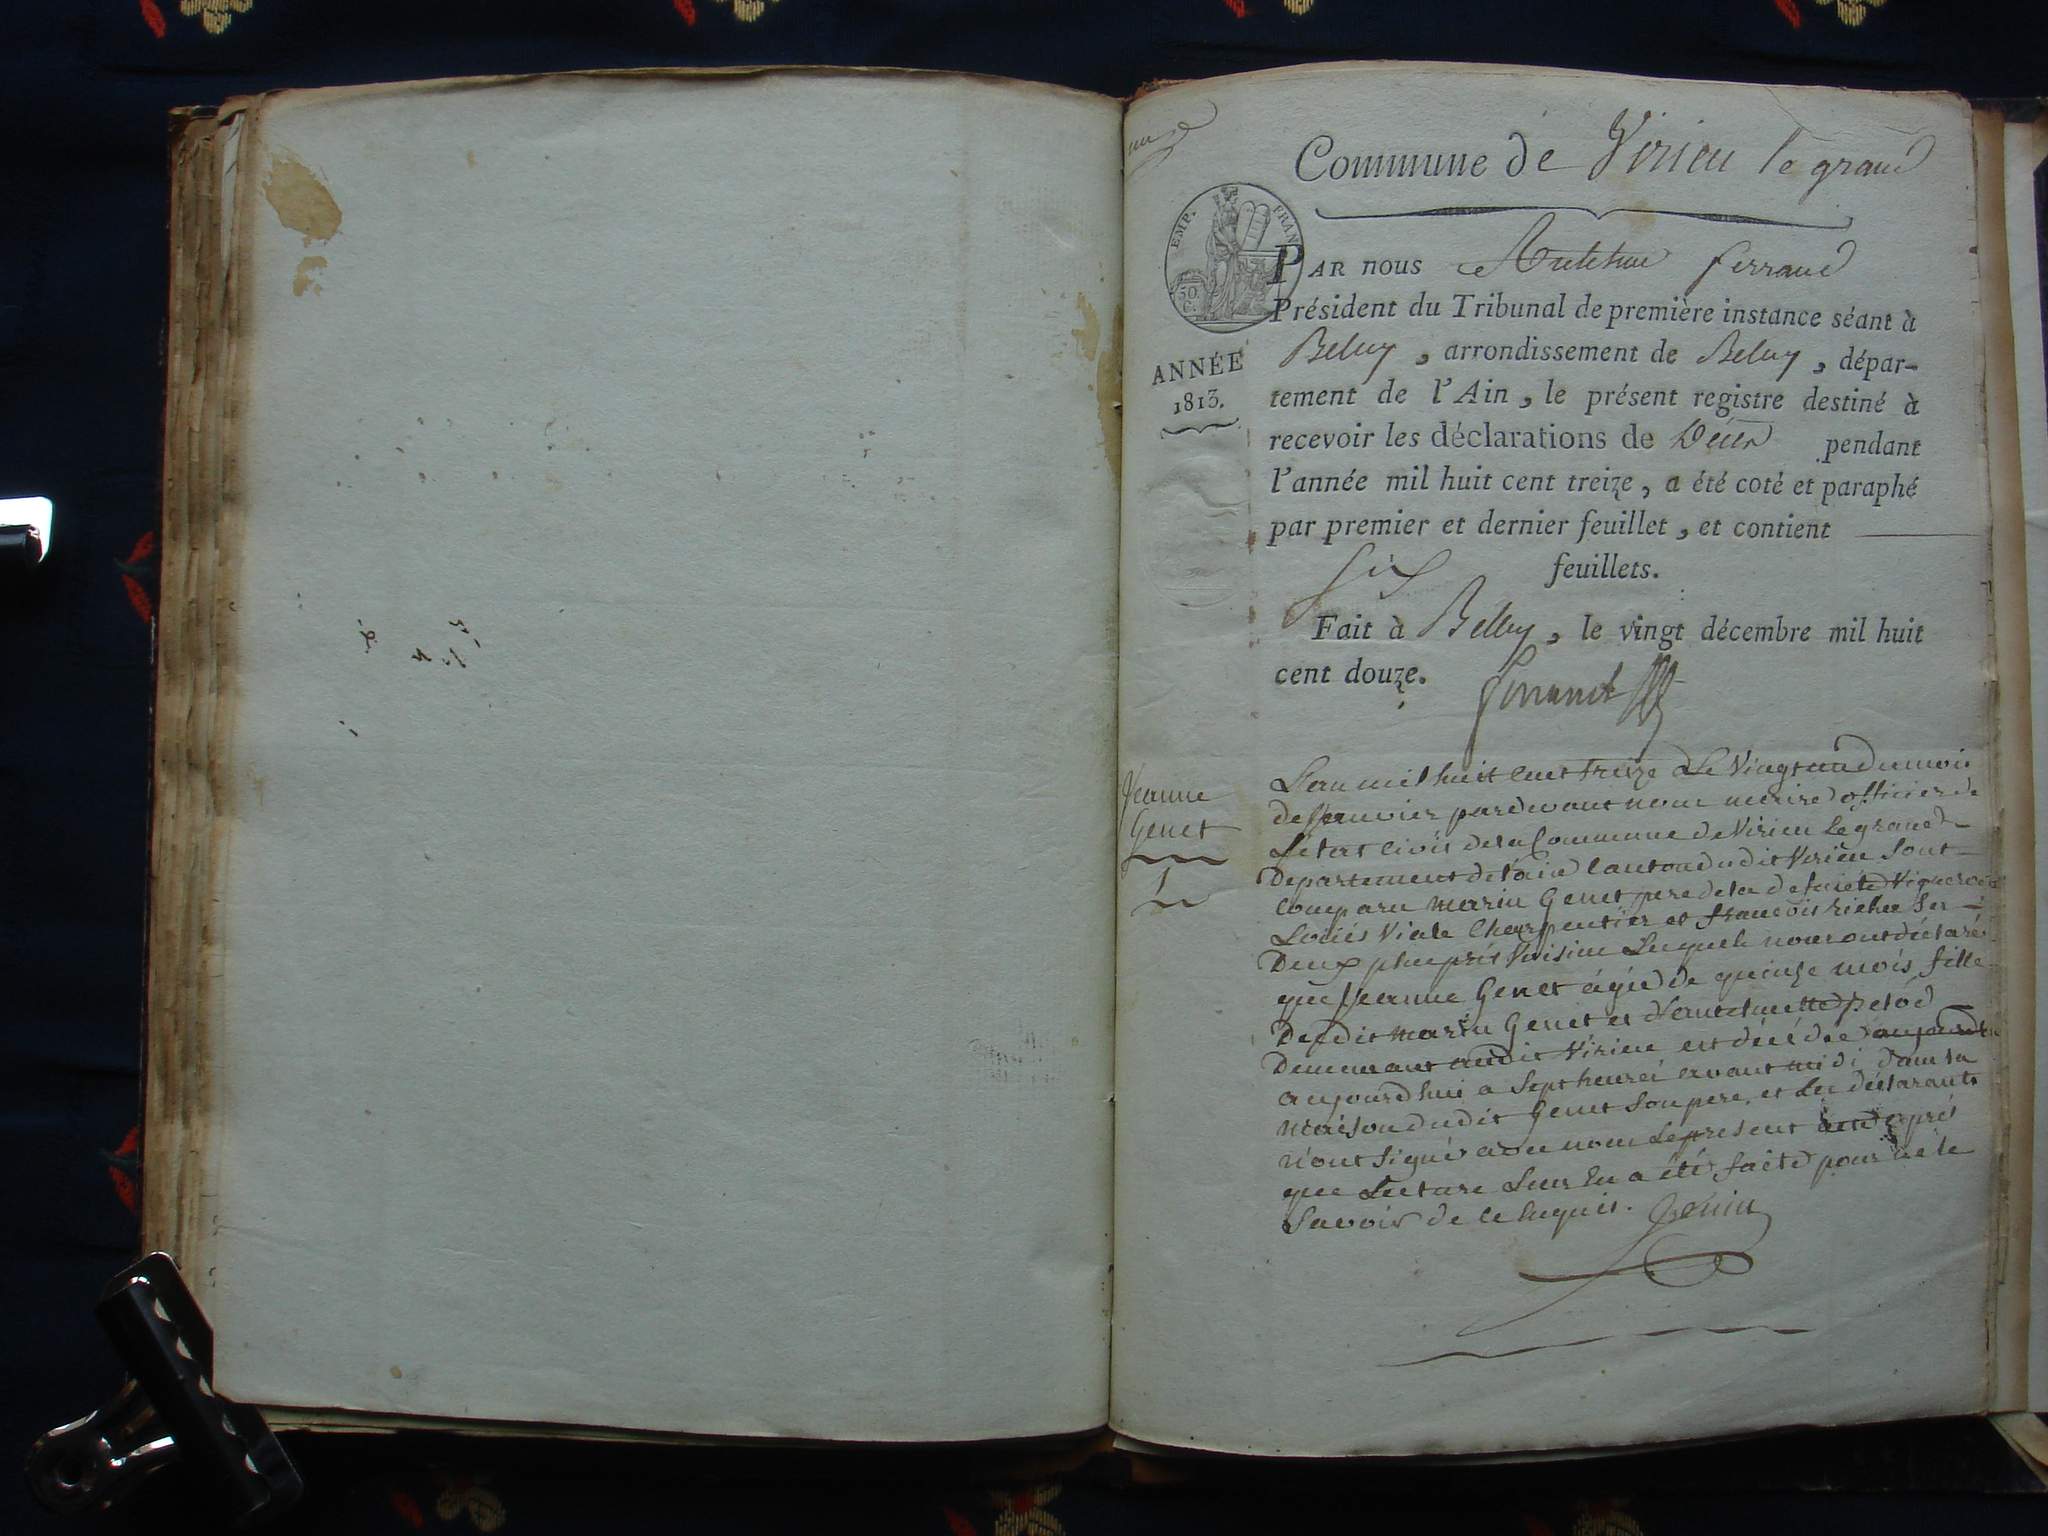 Commune de Virieu le grand
EMP. FRAN
50
C.
PAR nous Anthelme ferrand
Président du Tribunal de première instance séant à
Belley, arrondissement de Belley, dépar-
ANNÉE
1813.
tement de l'Ain, le présent registre destiné à
recevoir les déclarations de Décès pendant
l'année mil huit cent treize, a été coté et paraphé
par premier et dernier feuillet, et contient
six feuillets.
Fait à Belley, le vingt décembre mil huit
cent douze.
Jeanne
Genet
1
L'an mil huit cent treize & Le Vingt un du mois
de Janvier pardevant nous maire officier de
Letat civil de la Commune de Virieu Legrand
Departement de l'ain Canton dudit Virieu Sont
comparu marin Genet pere de la
Louis Viale Charpentier et françois
Deux plus près Voisins Lesquels nous ont déclaré
que Jeanne Genet âgée de quinze mois fille
Dudit marin Genet et d'antelmette
Demeurant audit Virieu est décédée
aujourdhui a Sept heures avant midi dans la
maison dudit Genet Son pere, et Les déclarants
n'ont Signés avec nous Le present acte après
que Lecture Leur En a été faite pour ne le
Savoir de ce Enquis. Genin